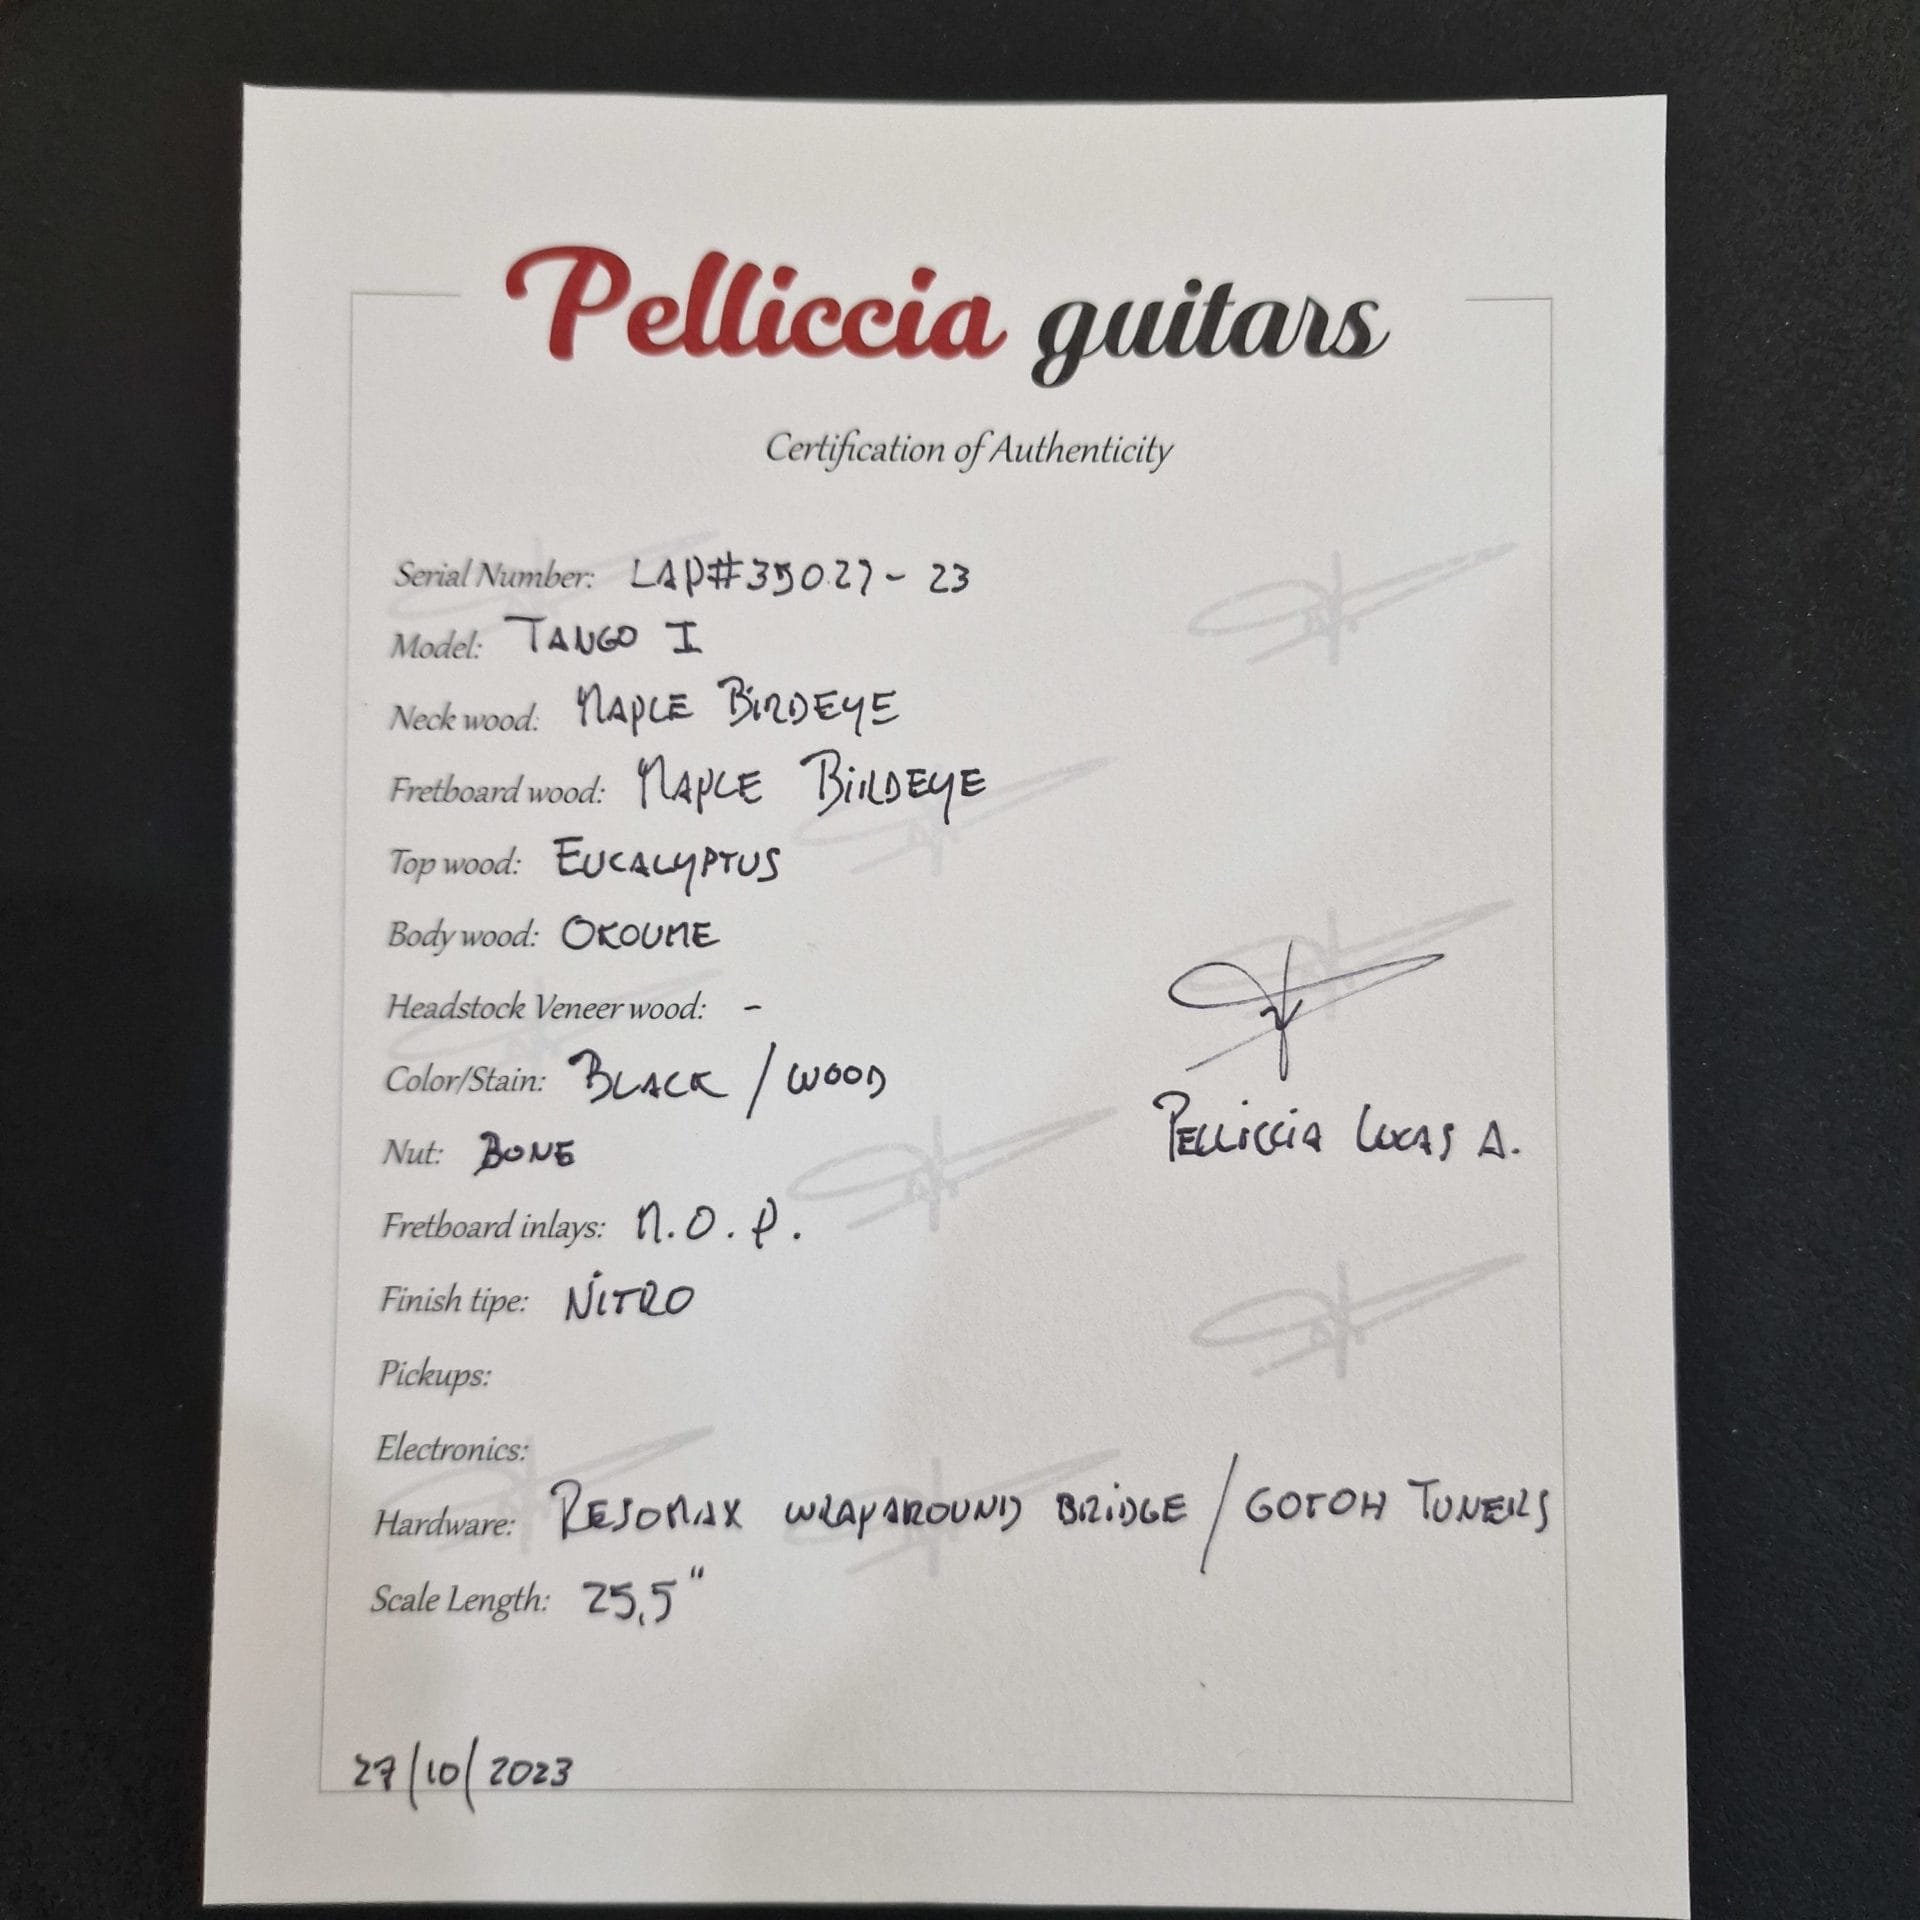 Pelliccia guitars
Certification of Authenticity
Serial Number: LAP#35027-23
Model: TANGO I
Neck wood: MAPLE BIRDEYE
Fretboard wood: MAPLE BIRDEYE
Top wood: EUCALYPTUS
Body wood: OKOUME
Headstock Veneer wood: -
Color/Stain: BLACK / WOOD
Nut: BONE
PELLICCIA LUCAS A.
Fretboard inlays: M.O.P.
Finish tipe: NITRO
Pickups:
Electronics:
Hardware: RESOMAX WRAPAROUND BRIDGE / GOTOH TUNERS
Scale Length: 25,5"
27/10/2023